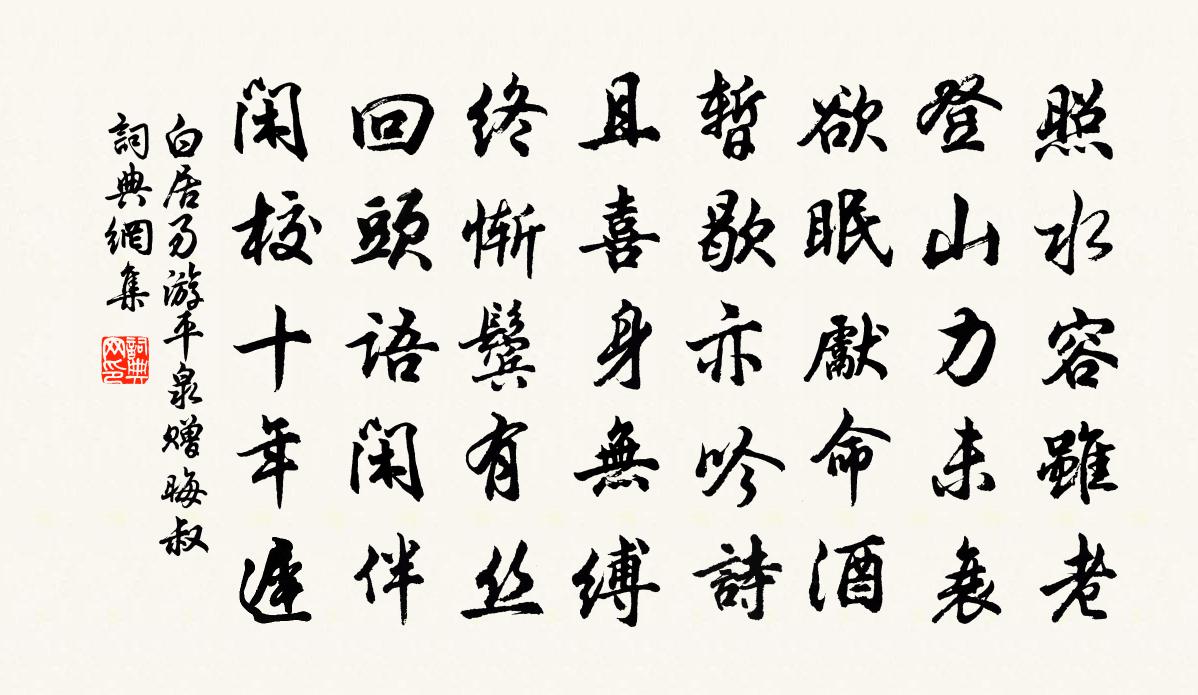 照水容雖老
登山力未衰
欲眠獻命酒
暫歇亦吟詩
且喜身無縛
終慚鬢有丝
回頭語閑伴
閑校十年遲
白居易游平泉贈晦叔
詞典網集
詞典网印